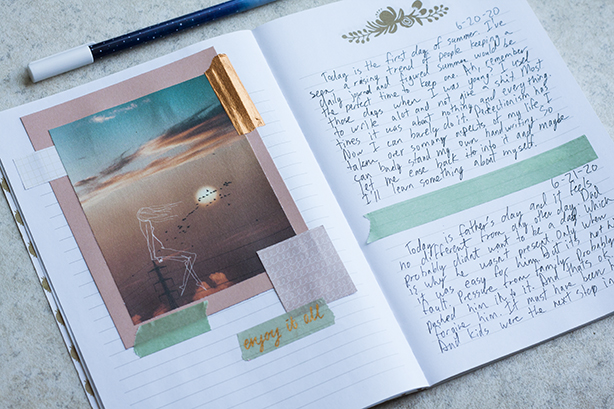 enjoy it all
6-20-20
Today is the first day of summer. I've
seen a rising trend of people keeping a
daily journal and figured summer would be
the perfect time to keep one. I remember
those days when I was young I used
to write a lot and not just a bit. Most
times it was about nothing and everything.
Now I can barely do it. Perfectionism has
taken over so many aspects of my life so
can barely stand my own handwriting.
Let me ease back into it and maybe
I'll learn something about myself.
6-21-20
Today is father's day and it feels
no different from any other day. Dad
probably didn't want to be a dad which
is why he wasn't present. Only knows
it was easy for him but it's not his
fault. Pressure from family probably
pushed him into it. And that's ok. I
forgive him. It must have been
And kids were the next step